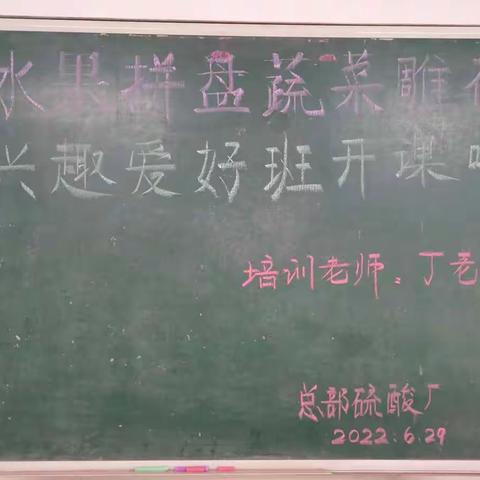 水果拼盘蔬菜雕
兴趣爱好班开课
培训老师:丁老
总部硫酸厂
2022.6.29